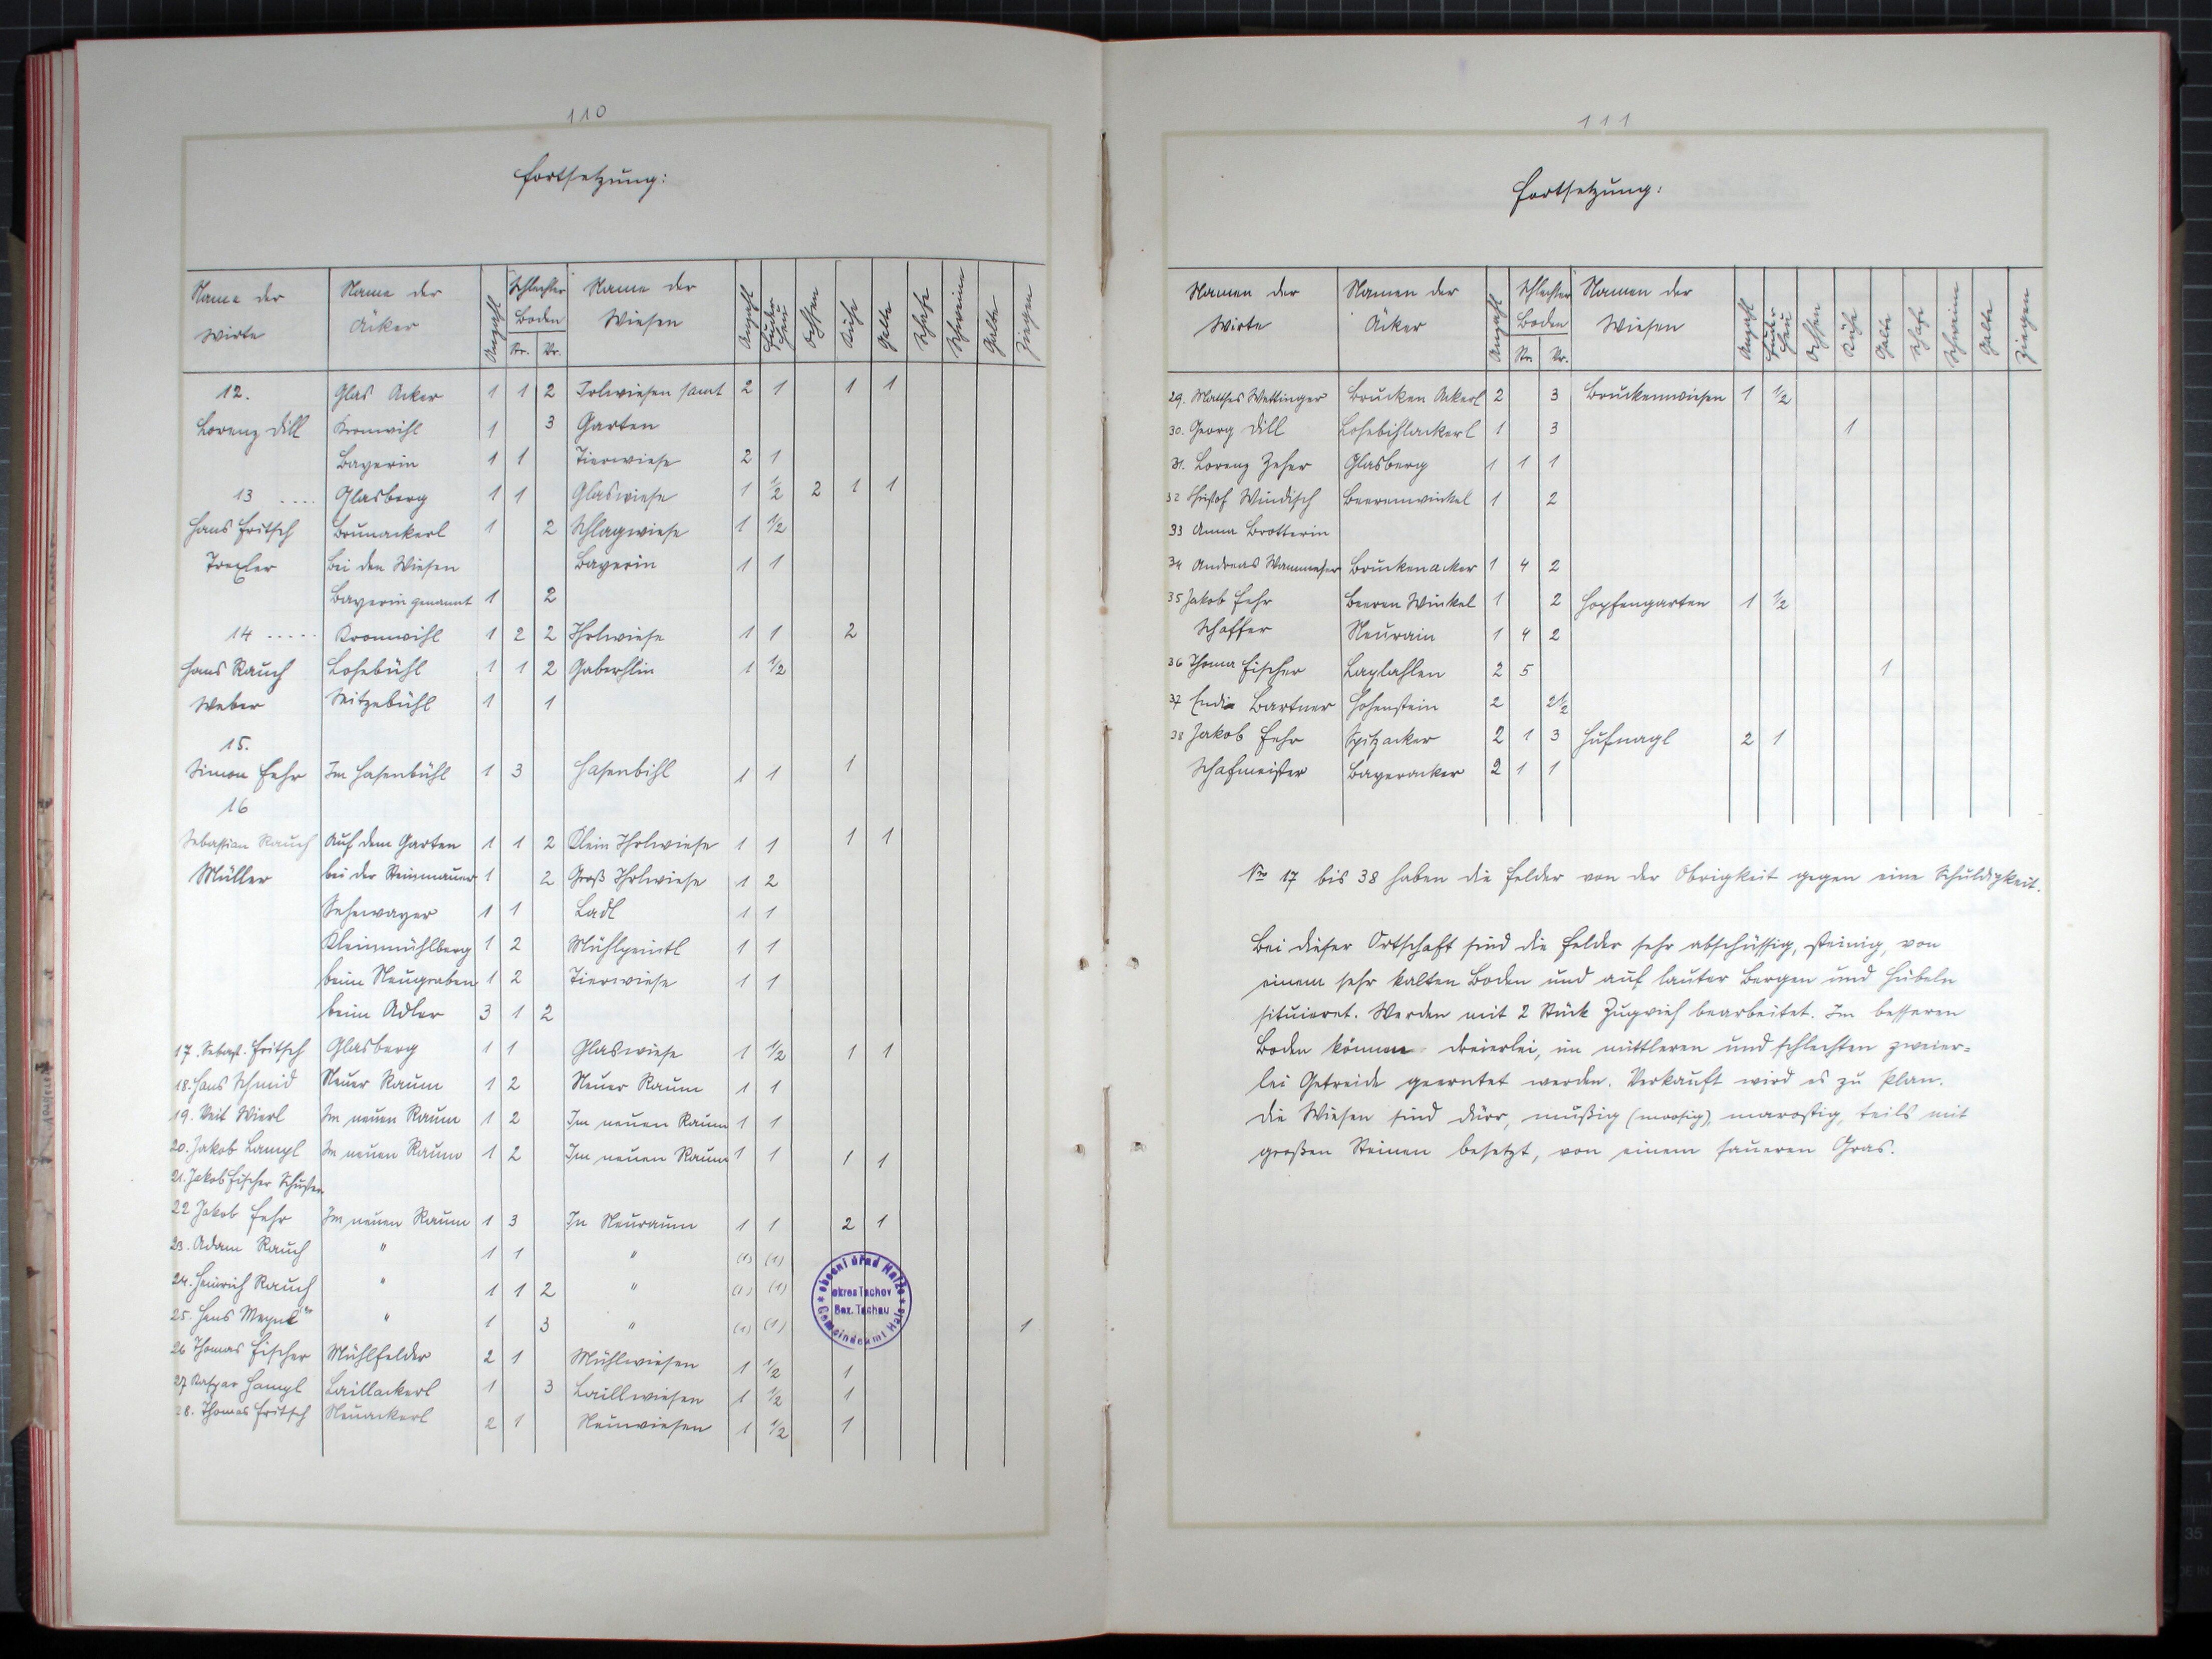 110
Fortsetzung:
Name der Wirte | Name der Äcker | Anzahl | Schlechter Boden Str. Vr. | Name der Wiesen | Anzahl | Fuder Heu | Ochsen | Kühe | Galte | Schafe | Schweine | Galte | Ziegen
12. Glas Acker 1 1 2 Irlwiesen samt 2 1 1 1
Lorenz Dill Kronwihl 1 3 Garten
Bayerin 1 1 Tierwiese 2 1
13 .... Glasberg 1 1 Glaswiese 1 1/2 2 1 1
Hans Fritsch Brunackerl 1 2 Schlagwiese 1 1/2
Bei den Wiesen Bayerin 1 1
Bayerin genannt 1 2
14 ..... Kronwihl 1 2 2 Thrlwiese 1 1 2
Hans Rauch Losebühl 1 1 2 Haberhlin 1 1/2
Weber Spitzebühl 1 1
15.
Simon Fehr Im Hasenbühl 1 3 Hasenbihl 1 1 1
16
Sebastian Rauch Auf dem Garten 1 1 2 Klein Thrlwiese 1 1 1 1
Müller bei der Steinmauer 1 2 Groß Thrlwiese 1 2
Sehewayer 1 1 Ladl 1 1
Kleinmühlberg 1 2 Mühlpeintl 1 1
beim Neugraben 1 2 Tierwiese 1 1
beim Adler 3 1 2
17. Sebast. Fritsch Glasberg 1 1 Glaswiese 1 1/2 1 1
18. Hans Schmid Neuer Raum 1 2 Neuer Raum 1 1
19. Veit Wierl Im neuen Raum 1 2 Im neuen Raum 1 1
20. Jakob Lampl Im neuen Raum 1 2 Im neuen Raum 1 1 1 1
21. Jakob Fischer Schuster
22 Jakob Fehr Im neuen Raum 1 3 In Neuraum 1 1 2 1
23. Adam Rauch " 1 1 " (1) (1)
24. Heinrich Rauch " 1 1 2 " (1) (1)
25. Hans " 1 3 " (1) (1) 1
26 Thomas Fischer Mühlfelder 2 1 Mühlwiesen 1 1/2 1
27 Kaspar Hampl Laillackerl 1 3 Laillwiesen 1 1/2 1
28. Thomas Fritsch Neuackerl 2 1 Neuwiesen 1 1/2 1
obecní úřad Halže
okres Tachov
Bez. Tachau
Gemeindeamt Hals
111
Fortsetzung:
Namen der Wirte | Namen der Äcker | Anzahl | Schlechter Boden Str. Vr. | Namen der Wiesen | Anzahl | Fuder Heu | Ochsen | Kühe | Galte | Schafe | Schweine | Galte | Ziegen
29. Matthes Wettinger Brucken Ackerl 2 3 Bruckenwiesen 1 1/2
30. Georg Dill Losebihlackerl 1 3 1
31. Lorenz Zeher Glasberg 1 1 1
32 Christof Windisch Beerenwinkel 1 2
33 Anna Brotterin
34 Andreas Bruckenacker 1 4 2
35 Jakob Fehr Beeren Winkel 1 2 Hopfengarten 1 1/2
Schaffer Neurain 1 4 2
36 Thoma Fischer 2 5 1
37 Bartner Hohenstein 2 2 1/2
38 Jakob Fehr Spitzacker 2 1 3 Hufnagl 2 1
Schafmeister Bayeracker 2 1 1
Nro 17 bis 38 haben die Felder von der Obrigkeit gegen eine Schuldigkeit.
Bei dieser Ortschaft sind die Felder sehr abschüssig, steinig, von
einem sehr kalten Boden und auf lauter Bergen und Hübeln
situieret. Werden mit 2 Stück Zugvieh bearbeitet. Im besseren
Boden können dreierlei, im mittleren und schlechten zweier=
lei Getreide geerntet werden. Verkauft wird es zu Plan.
Die Wiesen sind dürr, mußig (moosig), marastig, teils mit
großen Steinen besetzt, von einem saueren Gras.